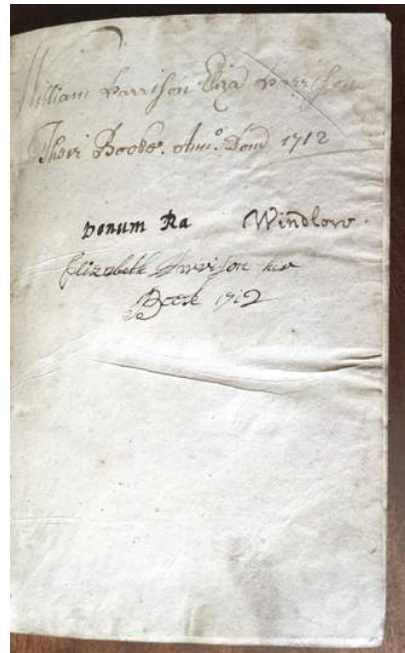 William Harrison Eliza Harrison
Their Booke. Ano. Dom 1712
Donum Ra Windlow.
Elizabeth Harrison her
Book 1712